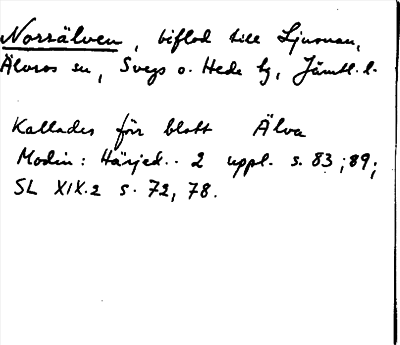 Norrälven, biflod till Ljusnan,
Älvros sn, Svegs o. Hede tg, Jämtl. l.
Kallades förr blott Älva
Modin: Härjed.. 2 uppl. s. 83; 89;
SL XIX.2 s. 72, 78.